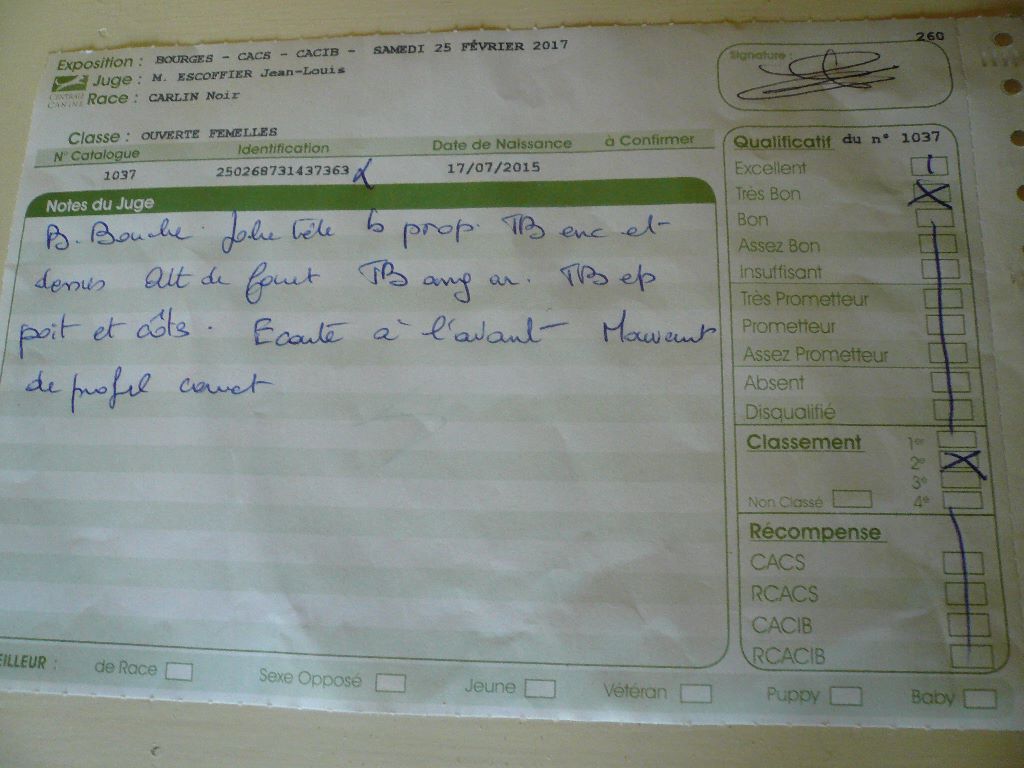 260
Exposition : BOURGES - CACS - CACIB - SAMEDI 25 FÉVRIER 2017
Juge : M. ESCOFFIER Jean-Louis
CENTRALE CANINE
Race : CARLIN Noir
Signature :
Classe : OUVERTE FEMELLES
N° Catalogue Identification Date de Naissance à Confirmer
1037 250268731437363 17/07/2015
Notes du Juge
B. Bouche. Jolie tête b prop. TB enc et
dessus Att de fouet TB ang ar. TB ep
poit et côts. Ecarté à l'avant Mouvement
de profil correct
Qualificatif du n° 1037
Excellent
Très Bon X
Bon
Assez Bon
Insuffisant
Très Prometteur
Prometteur
Assez Prometteur
Absent
Disqualifié
Classement 1er
2e X
3e
Non Classé 4e
Récompense
CACS
RCACS
CACIB
RCACIB
EILLEUR : de Race Sexe Opposé Jeune Vétéran Puppy Baby